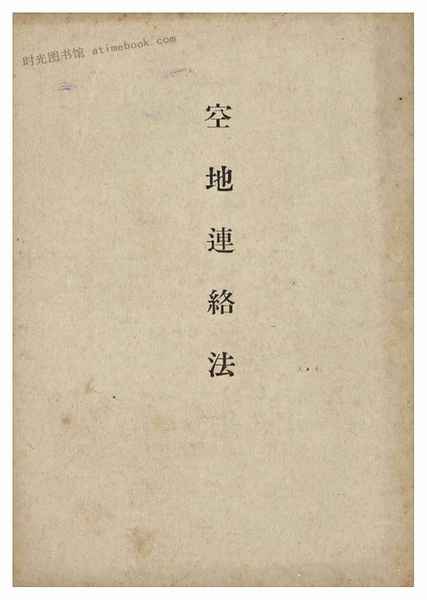 时光图书馆 atimebook.com
空地連絡法